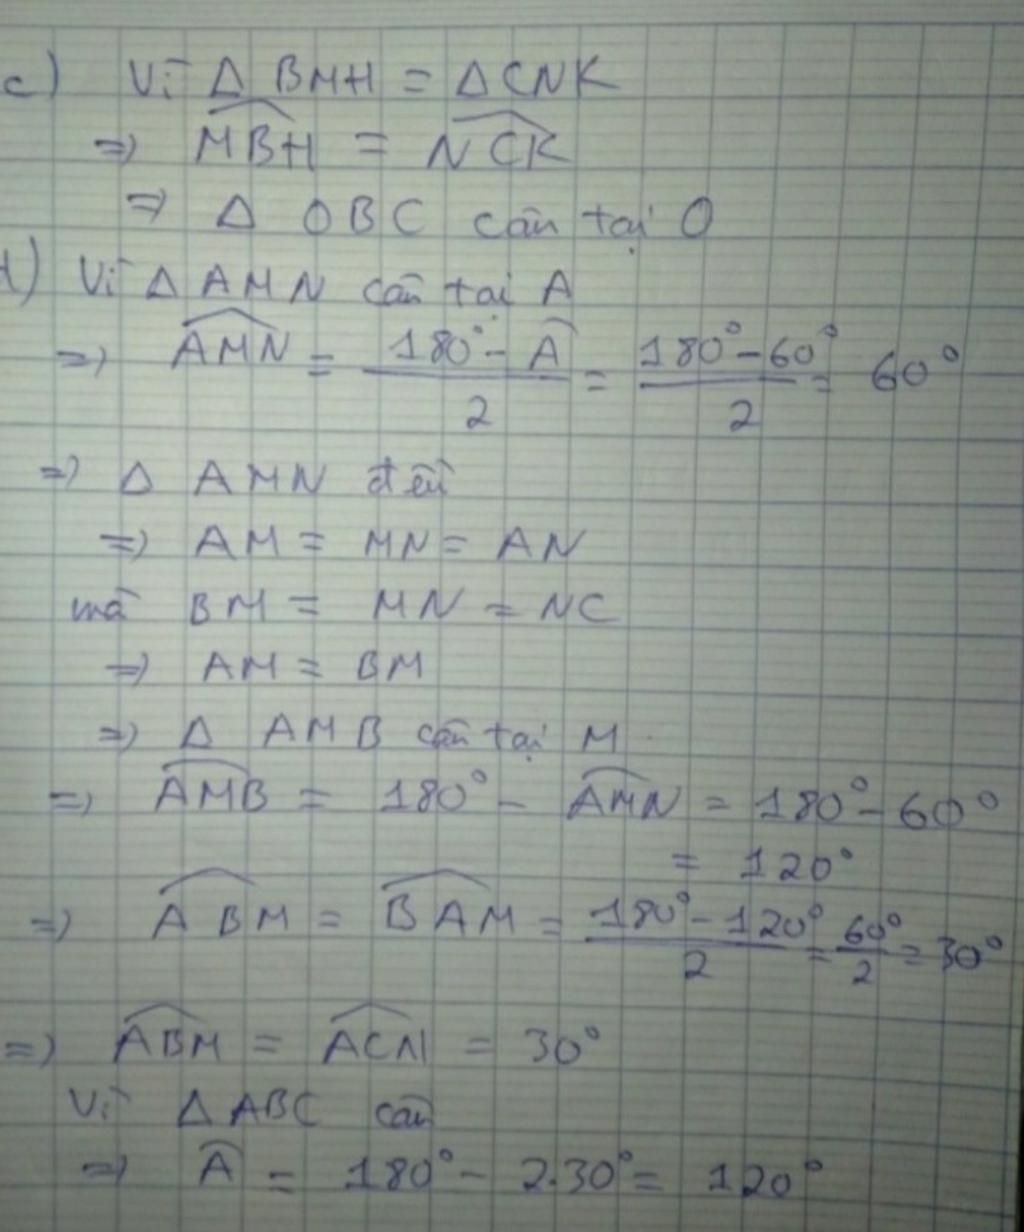 c) Vì Δ BMH = ΔCNK
=> \widehat{MBH} = \widehat{NCK}
=> Δ OBC cân tại O
d) Vì Δ AMN cân tại A
=> \widehat{AMN} = \frac{180° - \widehat{A}}{2} = \frac{180° - 60°}{2} = 60°
=> Δ AMN đều
=> AM = MN = AN
mà BM = MN = NC
=> AM = BM
=> Δ AMB cân tại M.
=> \widehat{AMB} = 180° - \widehat{AMN} = 180° - 60°
= 120°
=> \widehat{ABM} = \widehat{BAM} = \frac{180° - 120°}{2} = \frac{60°}{2} = 30°
=> \widehat{ABM} = \widehat{ACN} = 30°
Vì ΔABC cân
=> \widehat{A} = 180° - 2.30° = 120°